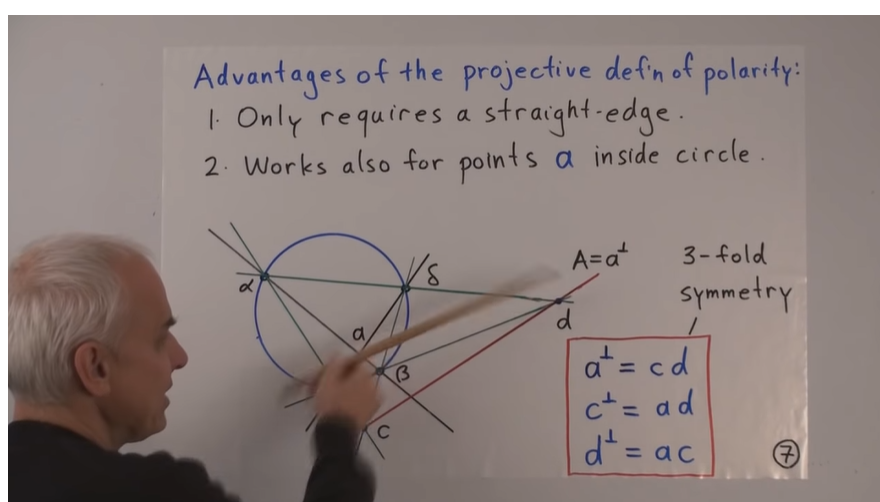 Advantages of the projective def'n of polarity:
1. Only requires a straight-edge.
2. Works also for points a inside circle.
A=a⊥
3-fold
symmetry
α
δ
d
a
β
c
a⊥ = cd
c⊥ = ad
d⊥ = ac
7